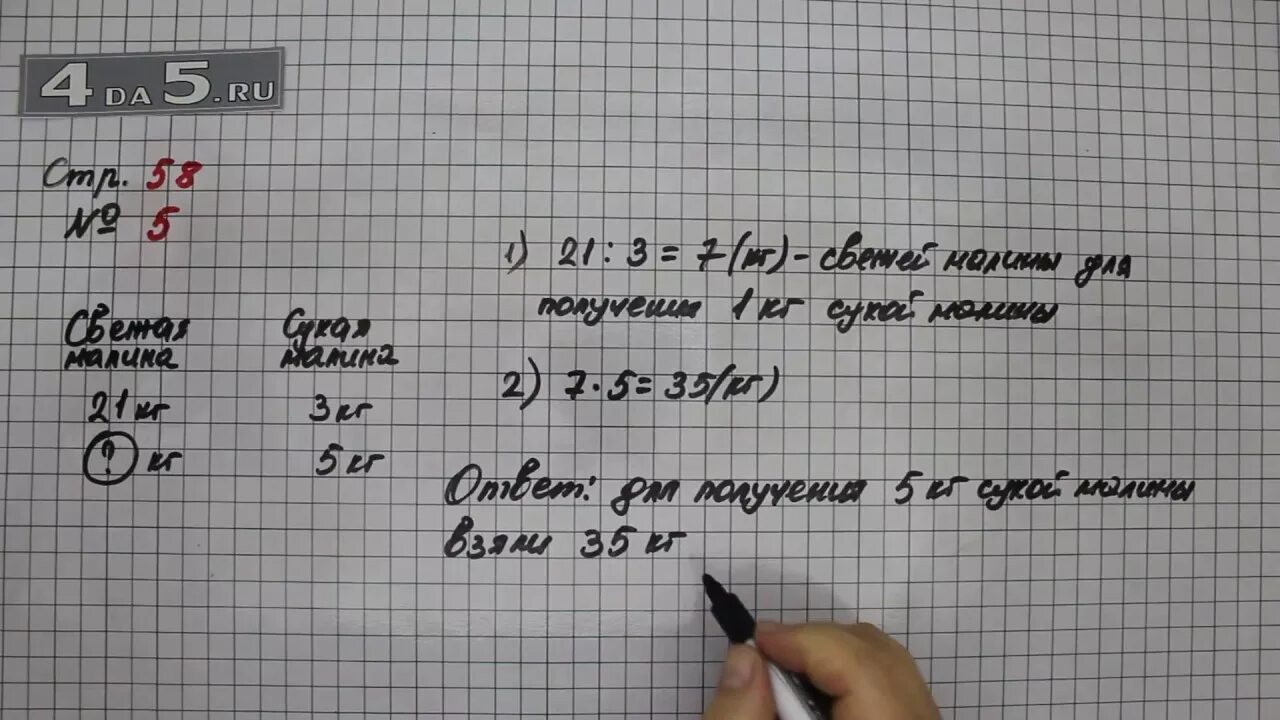 4DA5.RU
Стр. 58
№ 5
Свежая малина
Сухая малина
21 кг
3 кг
? кг
5 кг
1) 21 : 3 = 7 (кг) - свежей малины для
получения 1 кг сухой малины
2) 7 · 5 = 35 (кг)
Ответ: для получения 5 кг сухой малины
взяли 35 кг